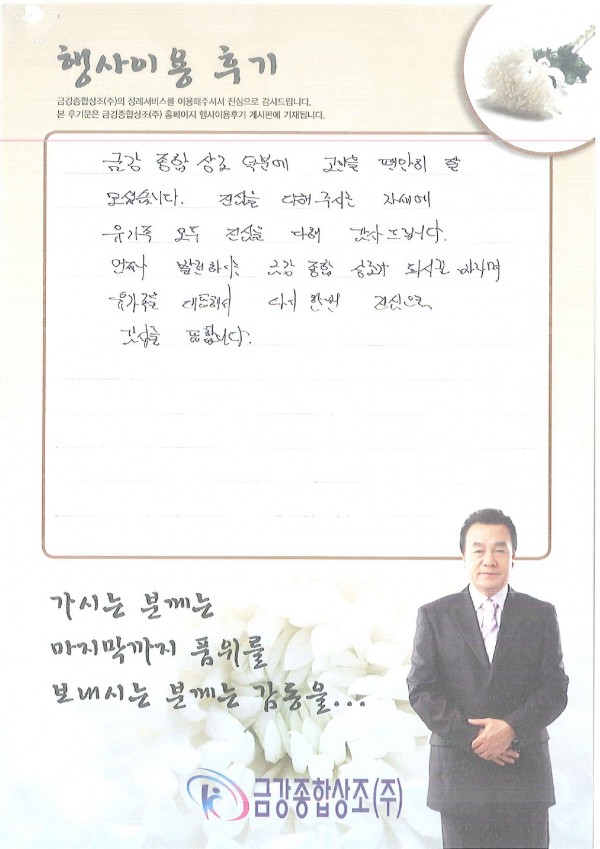 행사이용 후기
금강종합상조(주)의 장례서비스를 이용해주셔서 진심으로 감사드립니다.
본 후기문은 금강종합상조(주) 홈페이지 행사이용후기 게시판에 기재됩니다.
금강 종합 상조 덕분에 고인을 편안히 잘
모셨습니다. 진심을 다해 주시는 자세에
유가족 모두 진심을 다해 감사 드립니다.
언제나 발전하시는 금강 종합 상조가 되시길 바라며
유가족을 대표해서 다시 한번 진심으로
감사를 표합니다.
가시는 분께는
마지막까지 품위를
보내시는 분께는 감동을...
금강종합상조(주)